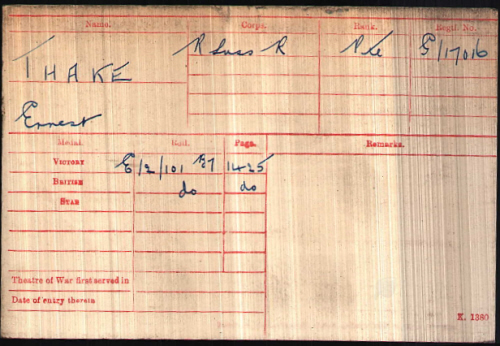 Name. Corps. Rank. Regtl. No.
THAKE R Suss R Pte G/17016
Ernest
Medal. Roll. Page. Remarks.
VICTORY E/2/101 B7 1425
BRITISH do do
STAR
Theatre of War first served in
Date of entry therein
K. 1380